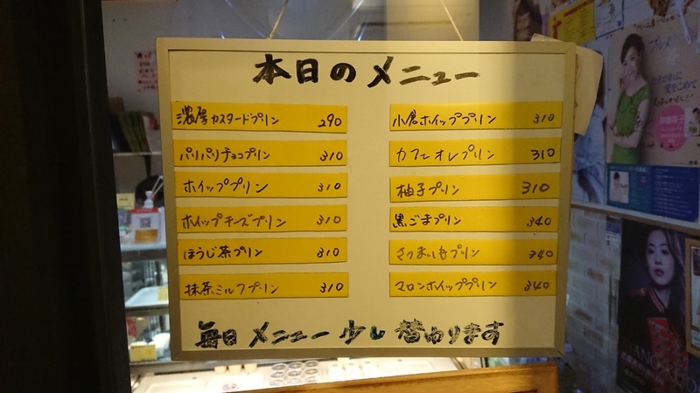 本日のメニュー
濃厚カスタードプリン 290
パリパリチョコプリン 310
ホイッププリン 310
ホイップチーズプリン 310
ほうじ茶プリン 310
抹茶ミルクプリン 310
小倉ホイッププリン 310
カフェオレプリン 310
柚子プリン 310
黒ごまプリン 340
さつまいもプリン 340
マロンホイッププリン 340
毎日 メニュー 少し 替わります